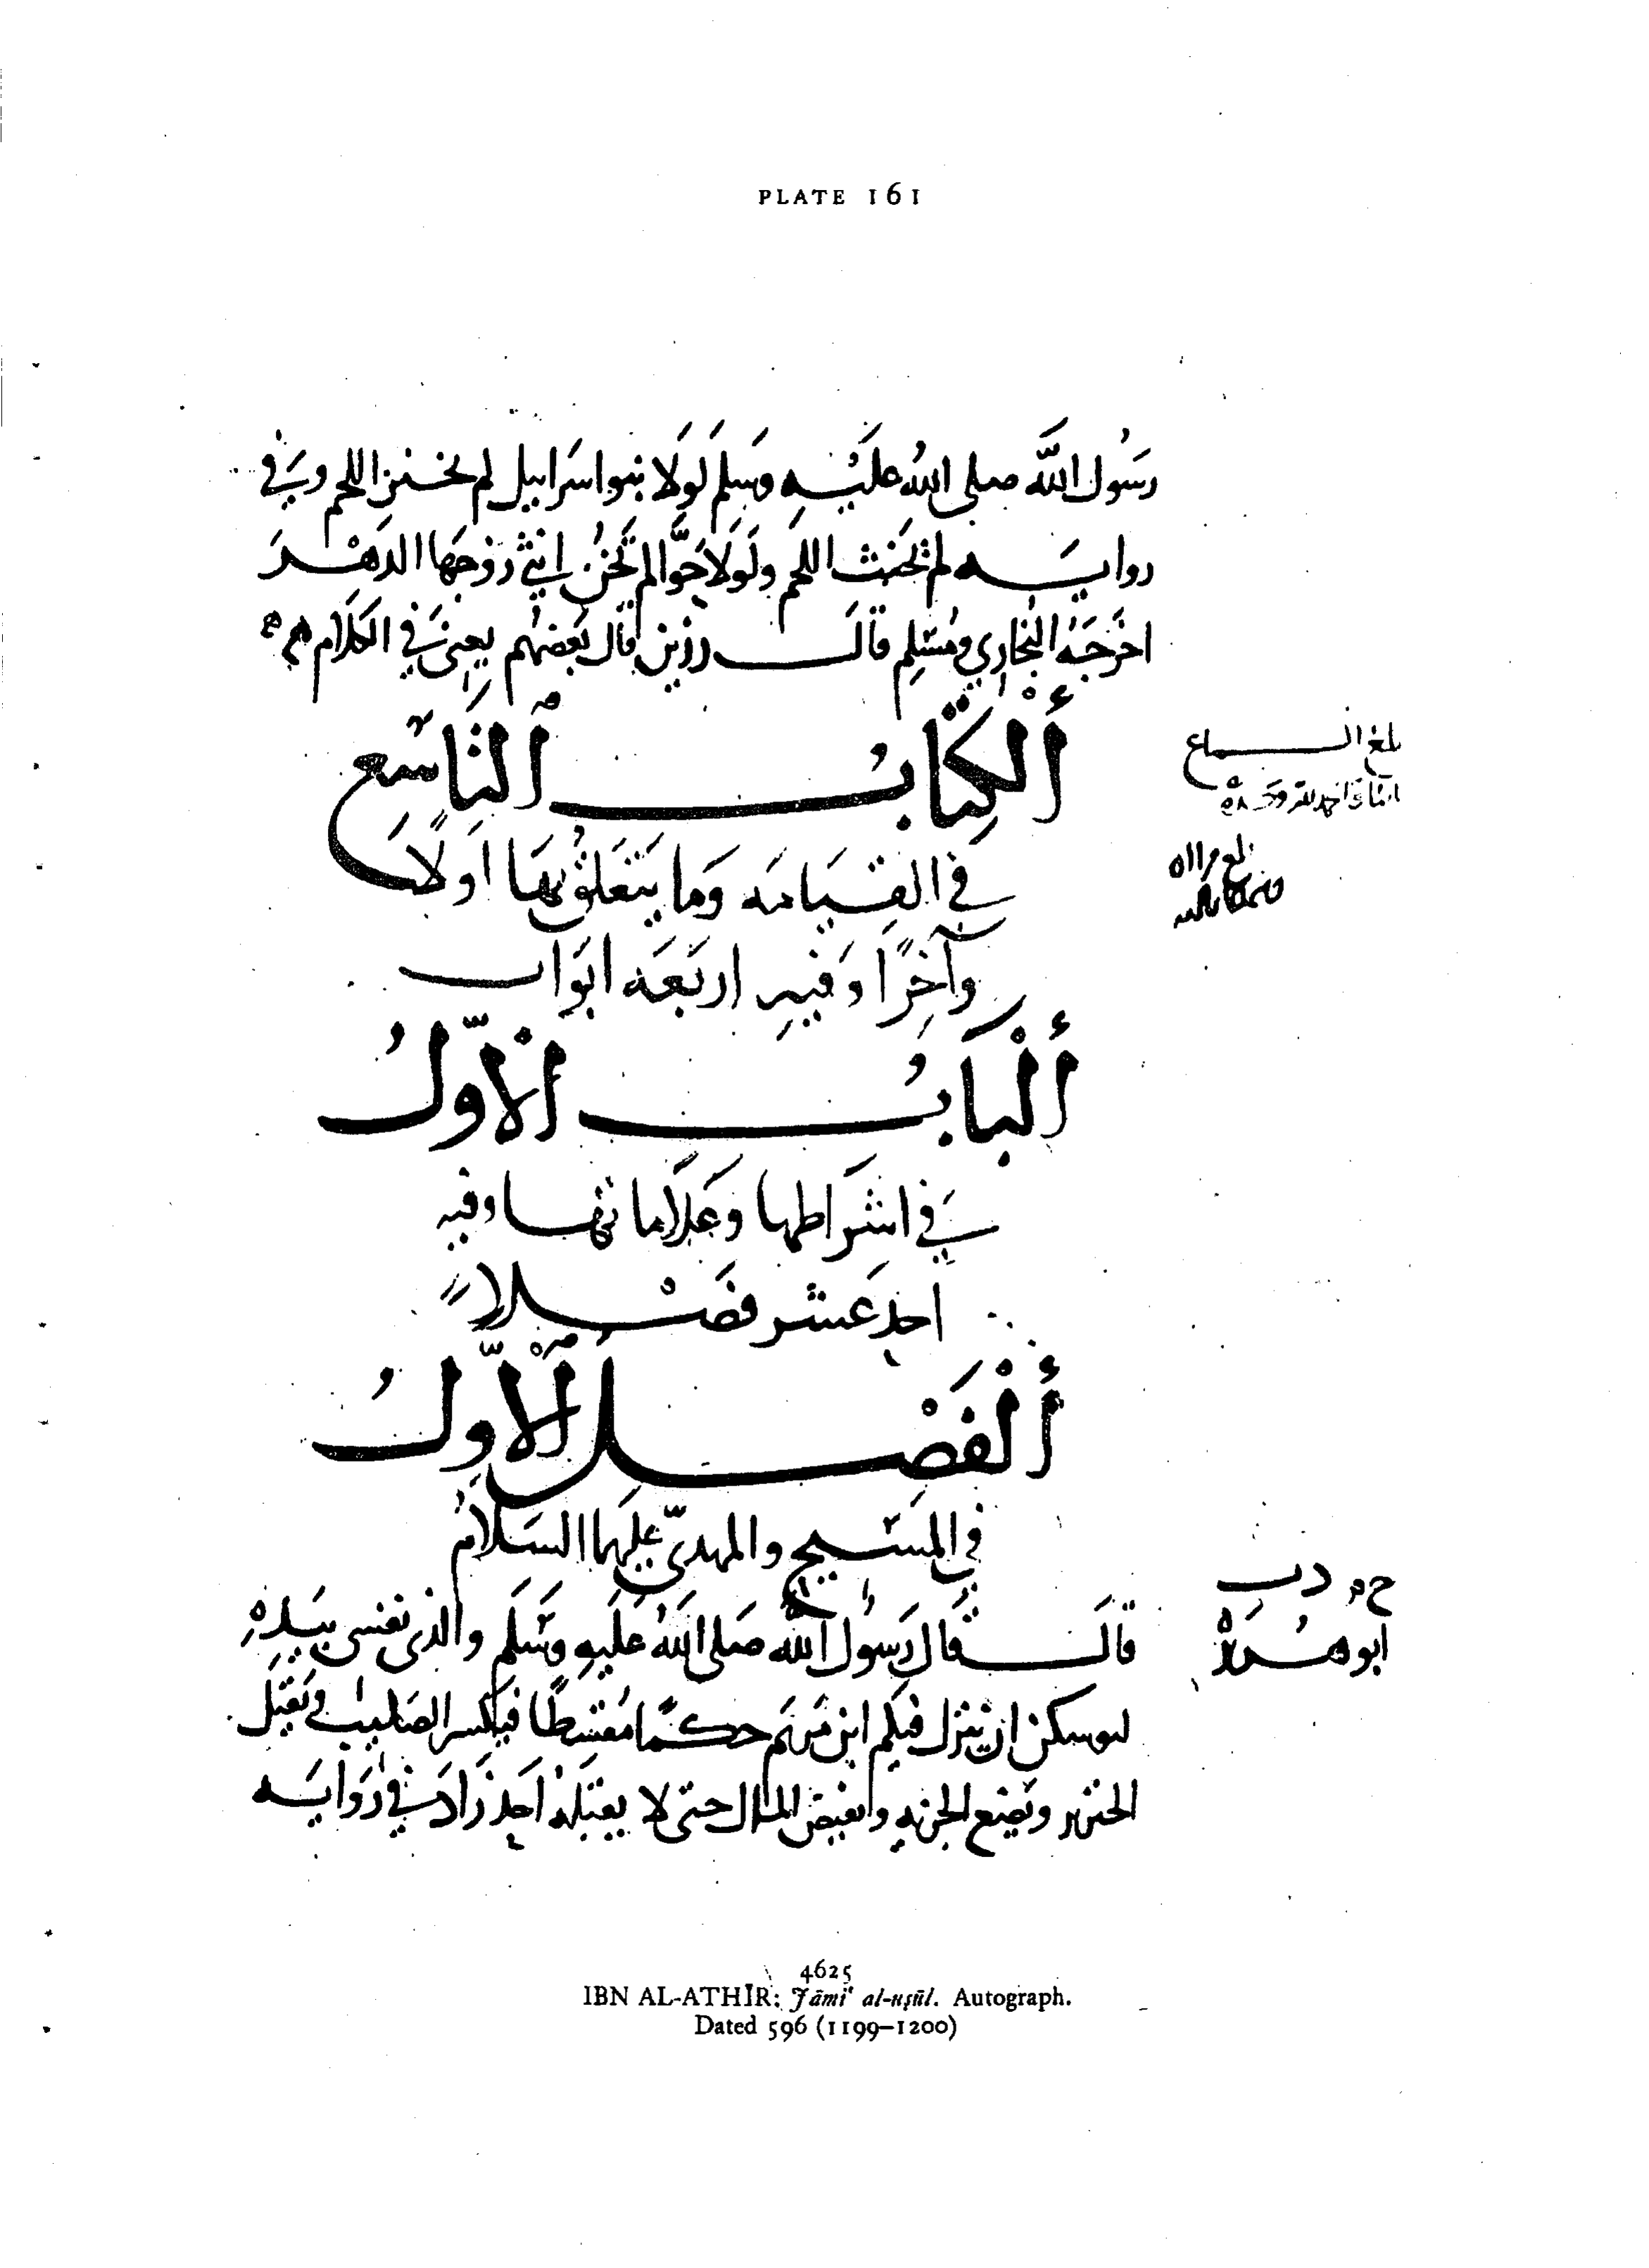 PLATE 161
رَسُول اللَّه صلى اللهُ عَلَيْه وَسَلم لَولَا بنوا سَرَاييل لم يخنز اللحم وَفي
روايَه لم تَخنث اللحَم ولَولَا حَوَّا لم تَخُن انثى زوْجَها الدَهْرَ
اخرَجَهُ البُخاري ومُسْلِم قالَ رزين قال بَعضهُم يعِنىَ في الكَلَام
أَلْكِتَابُ التَّاسِع
بلغ السماع
في القِيَامَه وَمَا يَتَعَلقُ بهَا اَولًا
وآخِرًا وَفيهِ اربَعَه ابوَاب
أَلْبَابُ الْأوّلُ
في اشرَاطها وعَلَاماتها وفيه
احدَ عَشر فَصْلاً
أَلْفَصْل الْأوّلُ
في المَسِيح والمهديّ عليهما السَلَامُ
خ م د ت
ابو هُرَيرَة
قالَ قَالَ رَسُولُ اللَّه صَلى اللَّهُ عَلَيهِ وسَلم والذى نفسى بيَدِهِ
ليوسكن ان ينزل فيكم ابن مَريَم حكمًا مُقسِطًا فيَكسر الصَليبَ ويَقتِلَ
الخنزير ويَضِعَ الجزيه ويَفيضَ المال حتى لا يَقبَلهُ اَحد زَادَ في رُوَايَه
4625
IBN AL-ATHĪR: Jāmiʿ al-uṣūl. Autograph.
Dated 596 (1199–1200)